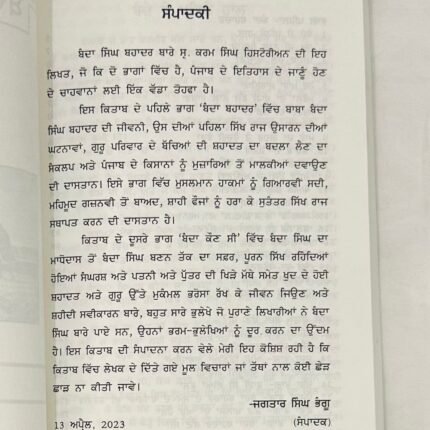 ਸੰਪਾਦਕੀ
ਬੰਦਾ ਸਿੰਘ ਬਹਾਦਰ ਬਾਰੇ ਸ੍ਰ. ਕਰਮ ਸਿੰਘ ਹਿਸਟੋਰੀਅਨ ਦੀ ਇਹ
ਲਿਖਤ, ਜੋ ਕਿ ਦੋ ਭਾਗਾਂ ਵਿੱਚ ਹੈ, ਪੰਜਾਬ ਦੇ ਇਤਿਹਾਸ ਦੇ ਜਾਣੂੰ ਹੋਣ
ਦੇ ਚਾਹਵਾਨਾਂ ਲਈ ਇੱਕ ਵੱਡਾ ਤੋਹਫਾ ਹੈ।
ਇਸ ਕਿਤਾਬ ਦੇ ਪਹਿਲੇ ਭਾਗ 'ਬੰਦਾ ਬਹਾਦਰ' ਵਿੱਚ ਬਾਬਾ ਬੰਦਾ
ਸਿੰਘ ਬਹਾਦਰ ਦੀ ਜੀਵਨੀ, ਉਸ ਦੀਆਂ ਪਹਿਲਾ ਸਿੱਖ ਰਾਜ ਉਸਾਰਨ ਦੀਆਂ
ਘਟਨਾਵਾਂ, ਗੁਰੂ ਪਰਿਵਾਰ ਦੇ ਬੱਚਿਆਂ ਦੀ ਸ਼ਹਾਦਤ ਦਾ ਬਦਲਾ ਲੈਣ ਦਾ
ਸੰਕਲਪ ਅਤੇ ਪੰਜਾਬ ਦੇ ਕਿਸਾਨਾਂ ਨੂੰ ਮੁਜ਼ਾਰਿਆਂ ਤੋਂ ਮਾਲਕੀਆਂ ਦਵਾਉਣ
ਦੀ ਦਾਸਤਾਨ ਹੈ। ਇਸੇ ਭਾਗ ਵਿੱਚ ਮੁਸਲਮਾਨ ਹਾਕਮਾਂ ਨੂੰ ਗਿਆਰਵੀਂ ਸਦੀ,
ਮਹਿਮੂਦ ਗਜ਼ਨਵੀ ਤੋਂ ਬਾਅਦ, ਸ਼ਾਹੀ ਫੌਜਾਂ ਨੂੰ ਹਰਾ ਕੇ ਸੁਤੰਤਰ ਸਿੱਖ ਰਾਜ
ਸਥਾਪਤ ਕਰਨ ਦੀ ਦਾਸਤਾਨ ਹੈ।
ਕਿਤਾਬ ਦੇ ਦੂਸਰੇ ਭਾਗ 'ਬੰਦਾ ਕੌਣ ਸੀ' ਵਿੱਚ ਬੰਦਾ ਸਿੰਘ ਦਾ
ਮਾਧੋਦਾਸ ਤੋਂ ਬੰਦਾ ਸਿੰਘ ਬਣਨ ਤੱਕ ਦਾ ਸਫ਼ਰ, ਪੂਰਨ ਸਿੱਖ ਰਹਿੰਦਿਆਂ
ਹੋਇਆਂ ਸੰਘਰਸ਼ ਅਤੇ ਪਤਨੀ ਅਤੇ ਪੁੱਤਰ ਦੀ ਖਿੜੇ ਮੱਥੇ ਸਮੇਤ ਖੁਦ ਦੇ ਹੋਈ
ਸ਼ਹਾਦਤ ਅਤੇ ਗੁਰੂ ਉੱਤੇ ਮੁਕੰਮਲ ਭਰੋਸਾ ਰੱਖ ਕੇ ਜੀਵਨ ਜਿਉਣ ਅਤੇ
ਸ਼ਹੀਦੀ ਸਵੀਕਾਰਨ ਬਾਰੇ, ਬਹੁਤ ਸਾਰੇ ਭੁਲੇਖੇ ਜੋ ਪੁਰਾਣੇ ਲਿਖਾਰੀਆਂ ਨੇ ਬੰਦਾ
ਸਿੰਘ ਬਾਰੇ ਪਾਏ ਸਨ, ਉਹਨਾਂ ਭਰਮ-ਭੁਲੇਖਿਆਂ ਨੂੰ ਦੂਰ ਕਰਨ ਦਾ ਉੱਦਮ
ਹੈ। ਇਸ ਕਿਤਾਬ ਦੀ ਸੰਪਾਦਨਾ ਕਰਨ ਵੇਲੇ ਮੇਰੀ ਇਹ ਕੋਸ਼ਿਸ਼ ਰਹੀ ਹੈ ਕਿ
ਕਿਤਾਬ ਵਿੱਚ ਲੇਖਕ ਦੇ ਦਿੱਤੇ ਗਏ ਮੂਲ ਵਿਚਾਰਾਂ ਜਾਂ ਤੱਥਾਂ ਨਾਲ ਕੋਈ ਛੇੜ
ਛਾੜ ਨਾ ਕੀਤੀ ਜਾਵੇ।
-ਜਗਤਾਰ ਸਿੰਘ ਭੰਗੂ
13 ਅਪ੍ਰੈਲ, 2023 (ਸੰਪਾਦਕ)